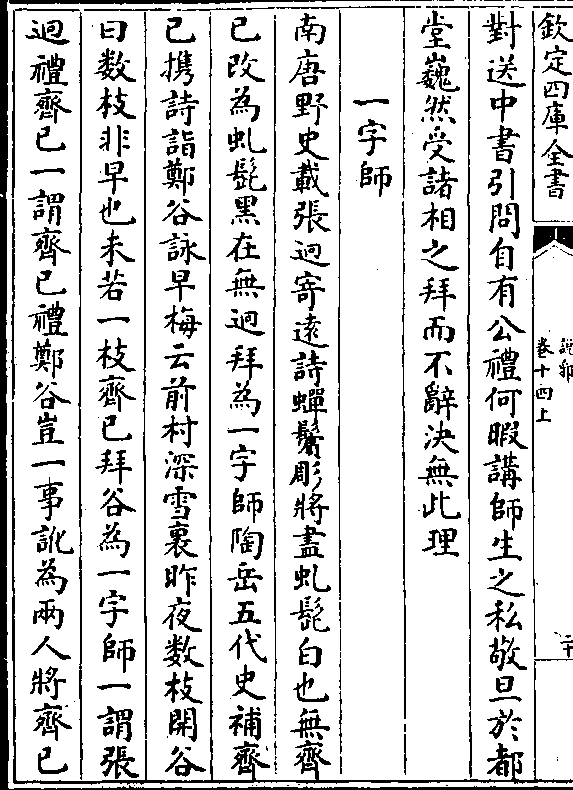 欽定四庫全書
說郛
卷十四上
二十
對送中書引問自有公禮何暇講師生之私敬旦於都
堂巍然受諸相之拜而不辭決無此理
一字師
南唐野史載張迥寄遠詩蟬鬢彫將盡虬髭白也無齊
已改為虬髭黑在無迥拜為一字師陶岳五代史補齊
已携詩詣鄭谷詠早梅云前村深雪裏昨夜数枝開谷
曰数枝非早也未若一枝齊已拜谷為一字師一謂張
迥禮齊已一謂齊已禮鄭谷豈一事訛為兩人將齊已